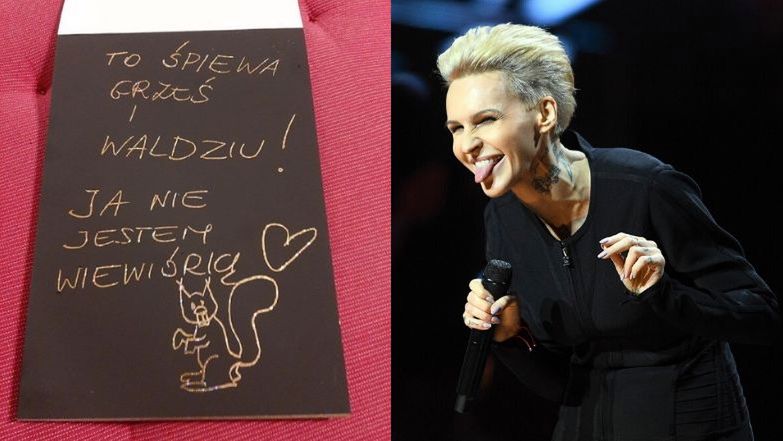 TO ŚPIEWA
GRZEŚ
I
WALDZIU!
JA NIE
JESTEM
WIEWIŚRKĄ